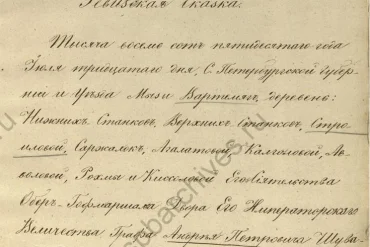 Ревизская Сказка.
Тысяча восемь сотъ пятидесятаго года
Іюля тридцатаго дня, С. Петербургской Губер-
ніи и Уѣзда Мызы Вартемякъ, деревень:
Нижнихъ Станковъ, Верхнихъ Станковъ, Стро-
иловой, Саржалокъ, Агалатовой, Калголовой, Ав-
коловой, Рохмы и Киссоловой Его Сіятельства
Оберъ-Гофмаршала Двора Его Императорскаго
Величества Графа Андрея Петровича Шува-